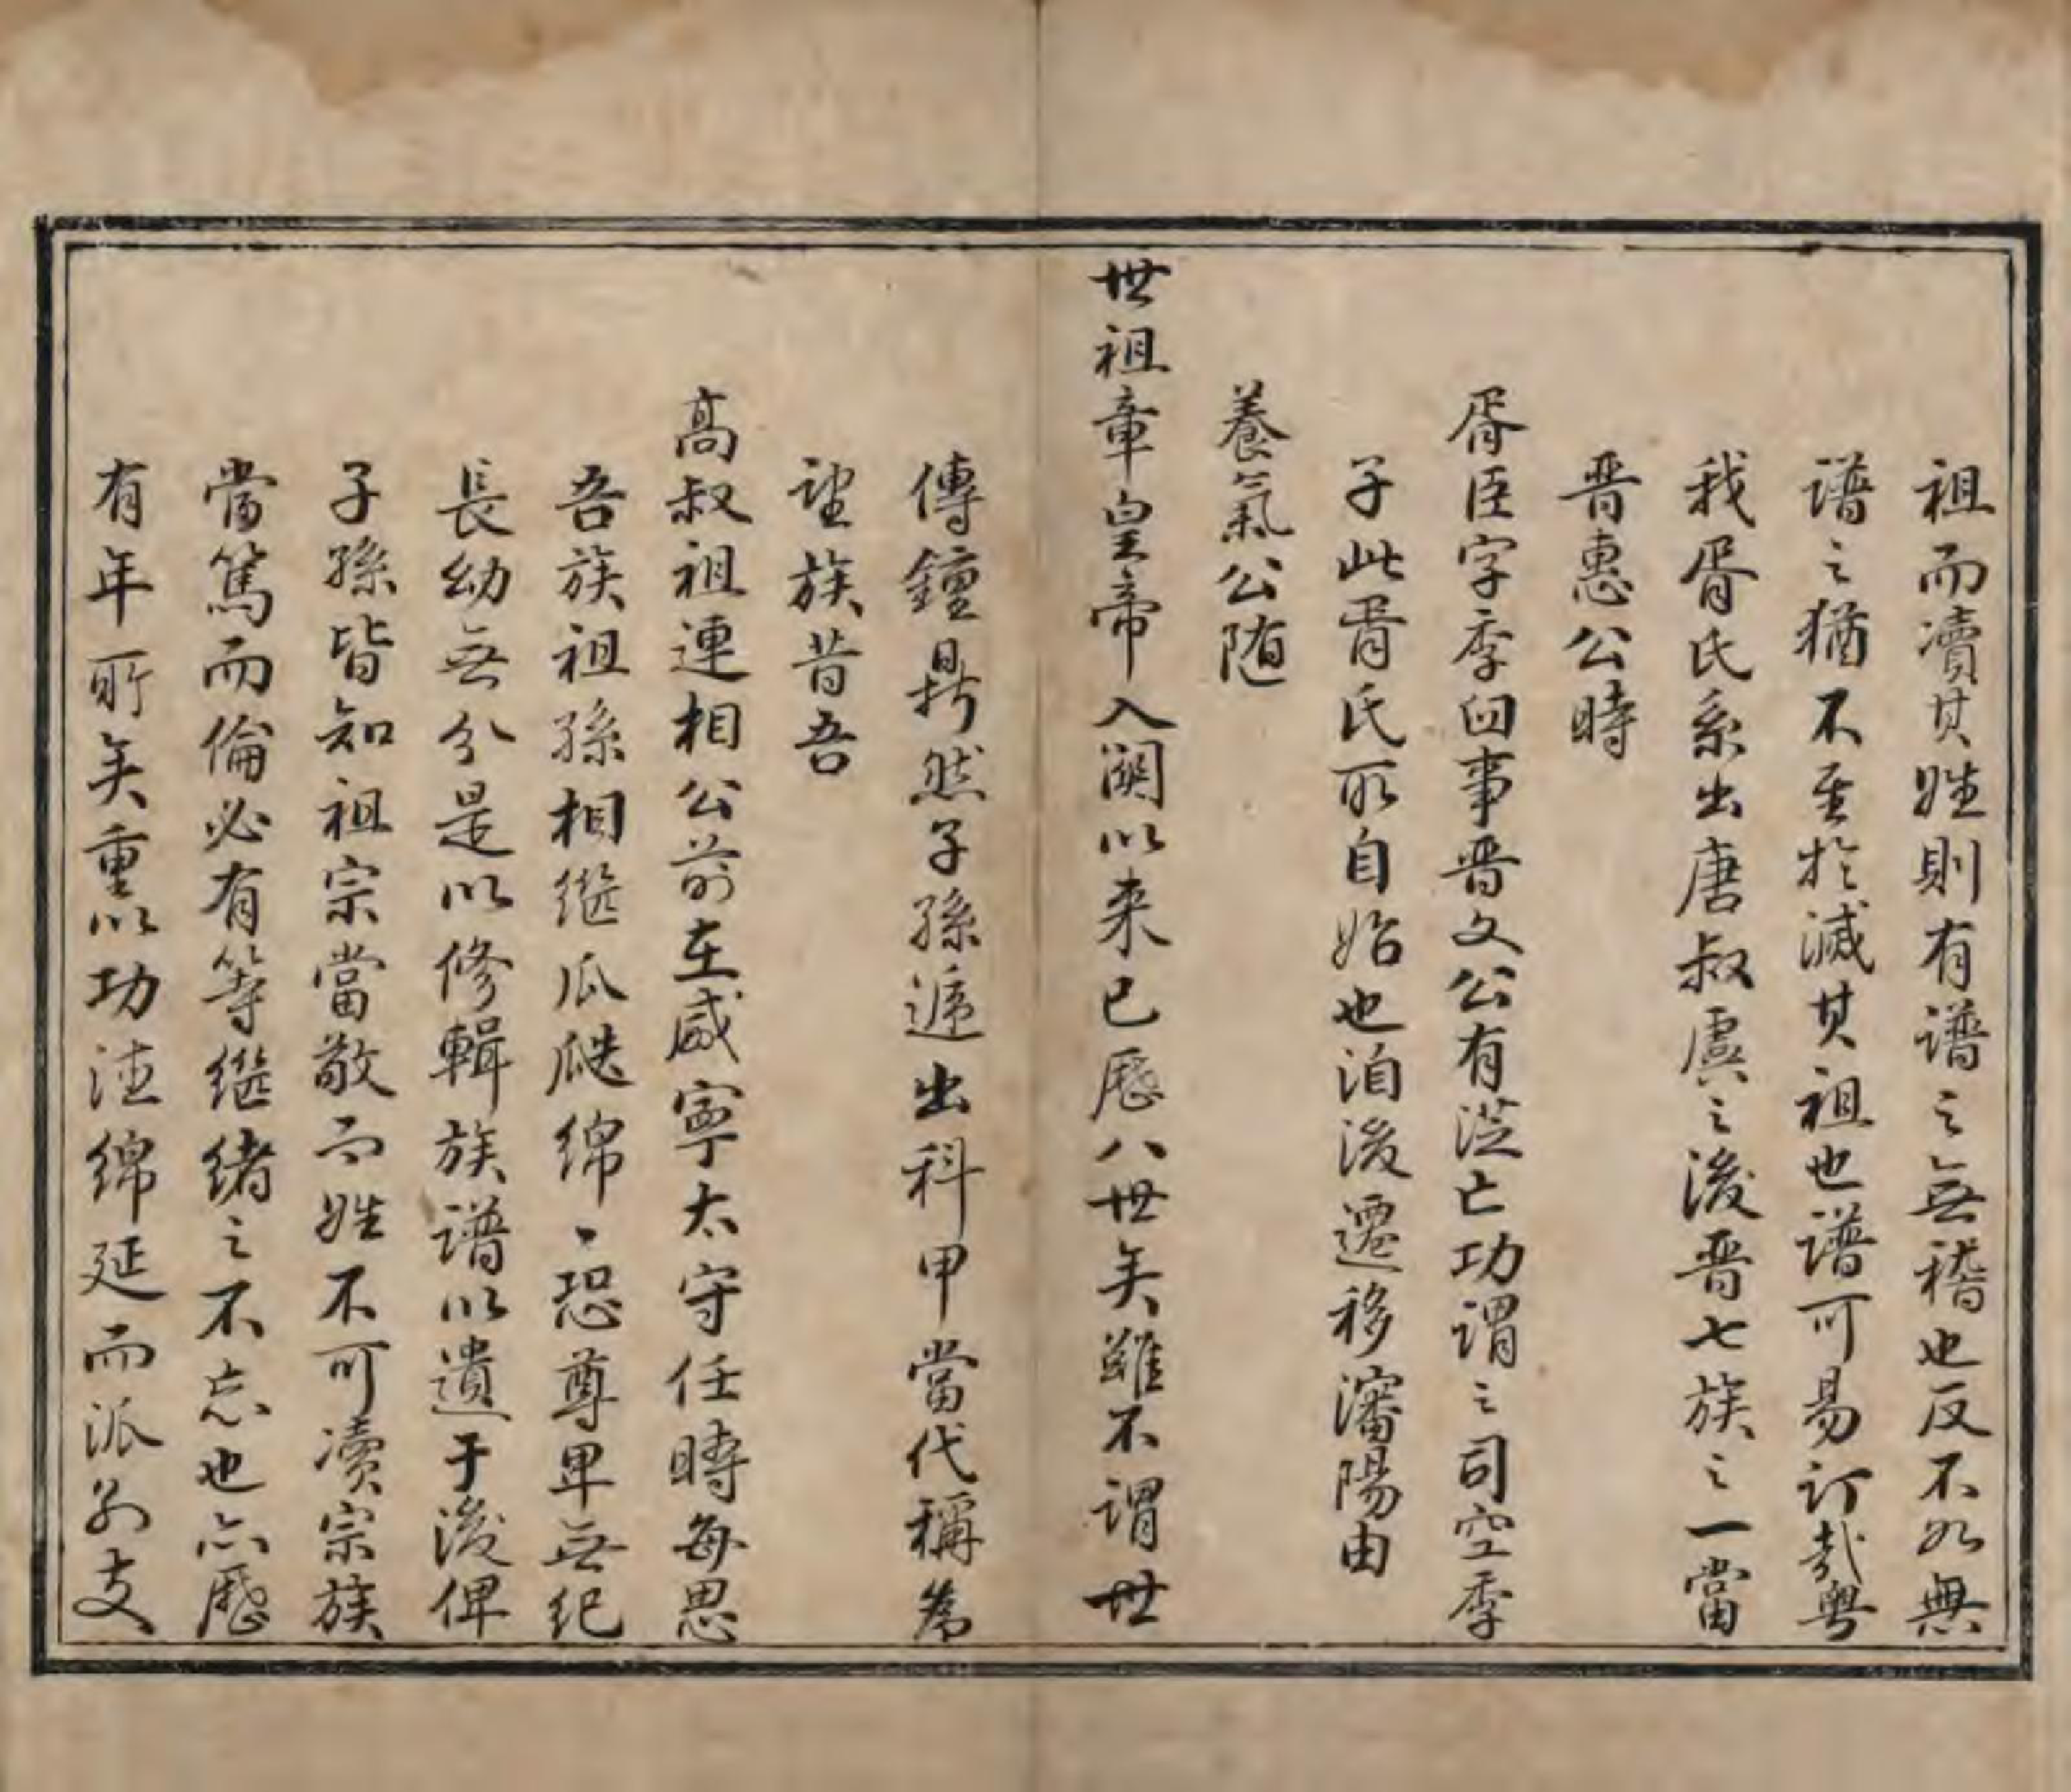 祖而瀆其姓則有譜之無稽也反不如無
譜之猶不至於滅其祖也譜可易訂哉粵
我胥氏系出唐叔虞之後晋七族之一當
晋惠公時
胥臣字季曰事晋文公有從亡功謂之司空季
子此胥氏所自始也洎後遷移瀋陽由
養氣公随
世祖章皇帝入関以来已歷八世矣雖不謂世
傳鐘鼎然子孫遞出科甲當代稱為
望族昔吾
高叔祖連相公前在咸寧太守任時每思
吾族祖孫相继瓜瓞綿、恐尊卑無纪
長幼無分是以修輯族譜以遺于後俾
子孫皆知祖宗當敬而姓不可瀆宗族
當篤而倫必有等继緒之不忘也亦歷
有年所矣重以功德綿延而派别支